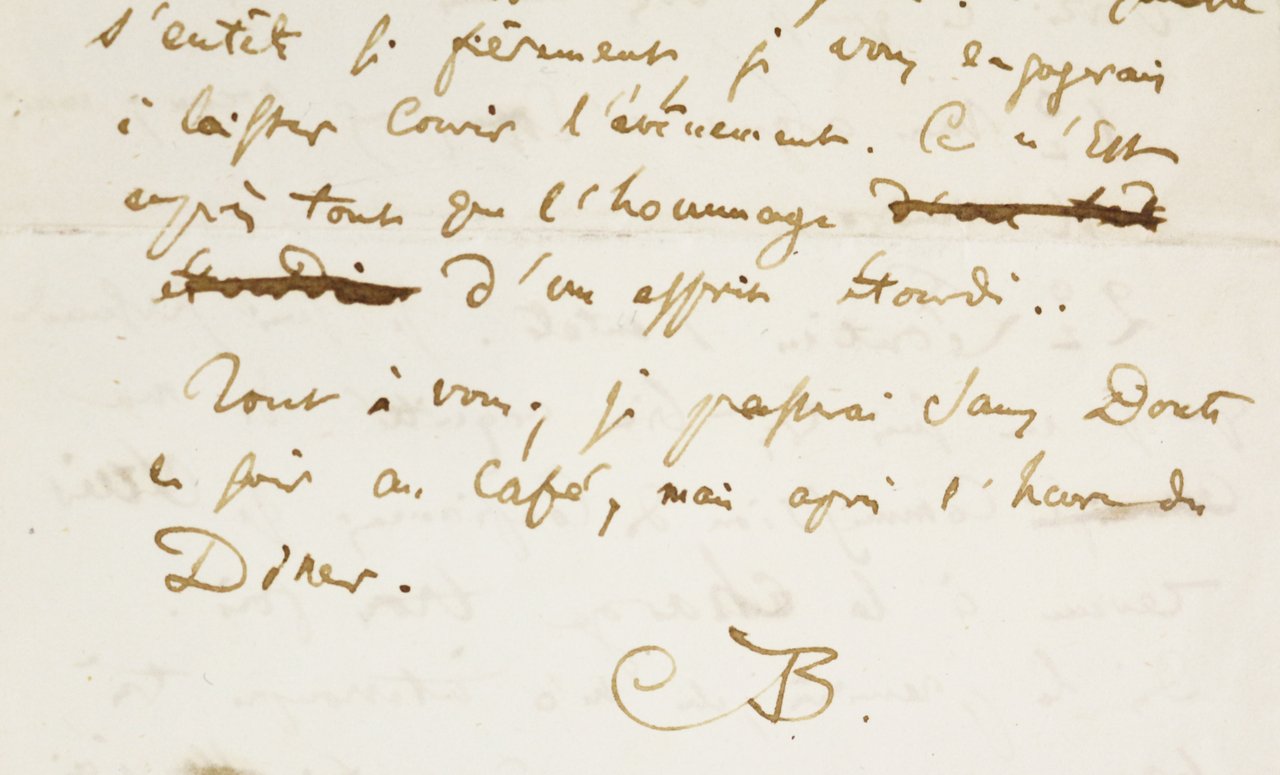 s'entête si fièrement, je vous engagerais
à laisser courir l'évènement. Ce n'Est
après tout que l'hommage d'un
étourdi d'un esprit étourdi..
Tout à vous; je passerai sans Doute
ce soir au Café, mais après l'heure du
Dîner.
CB.